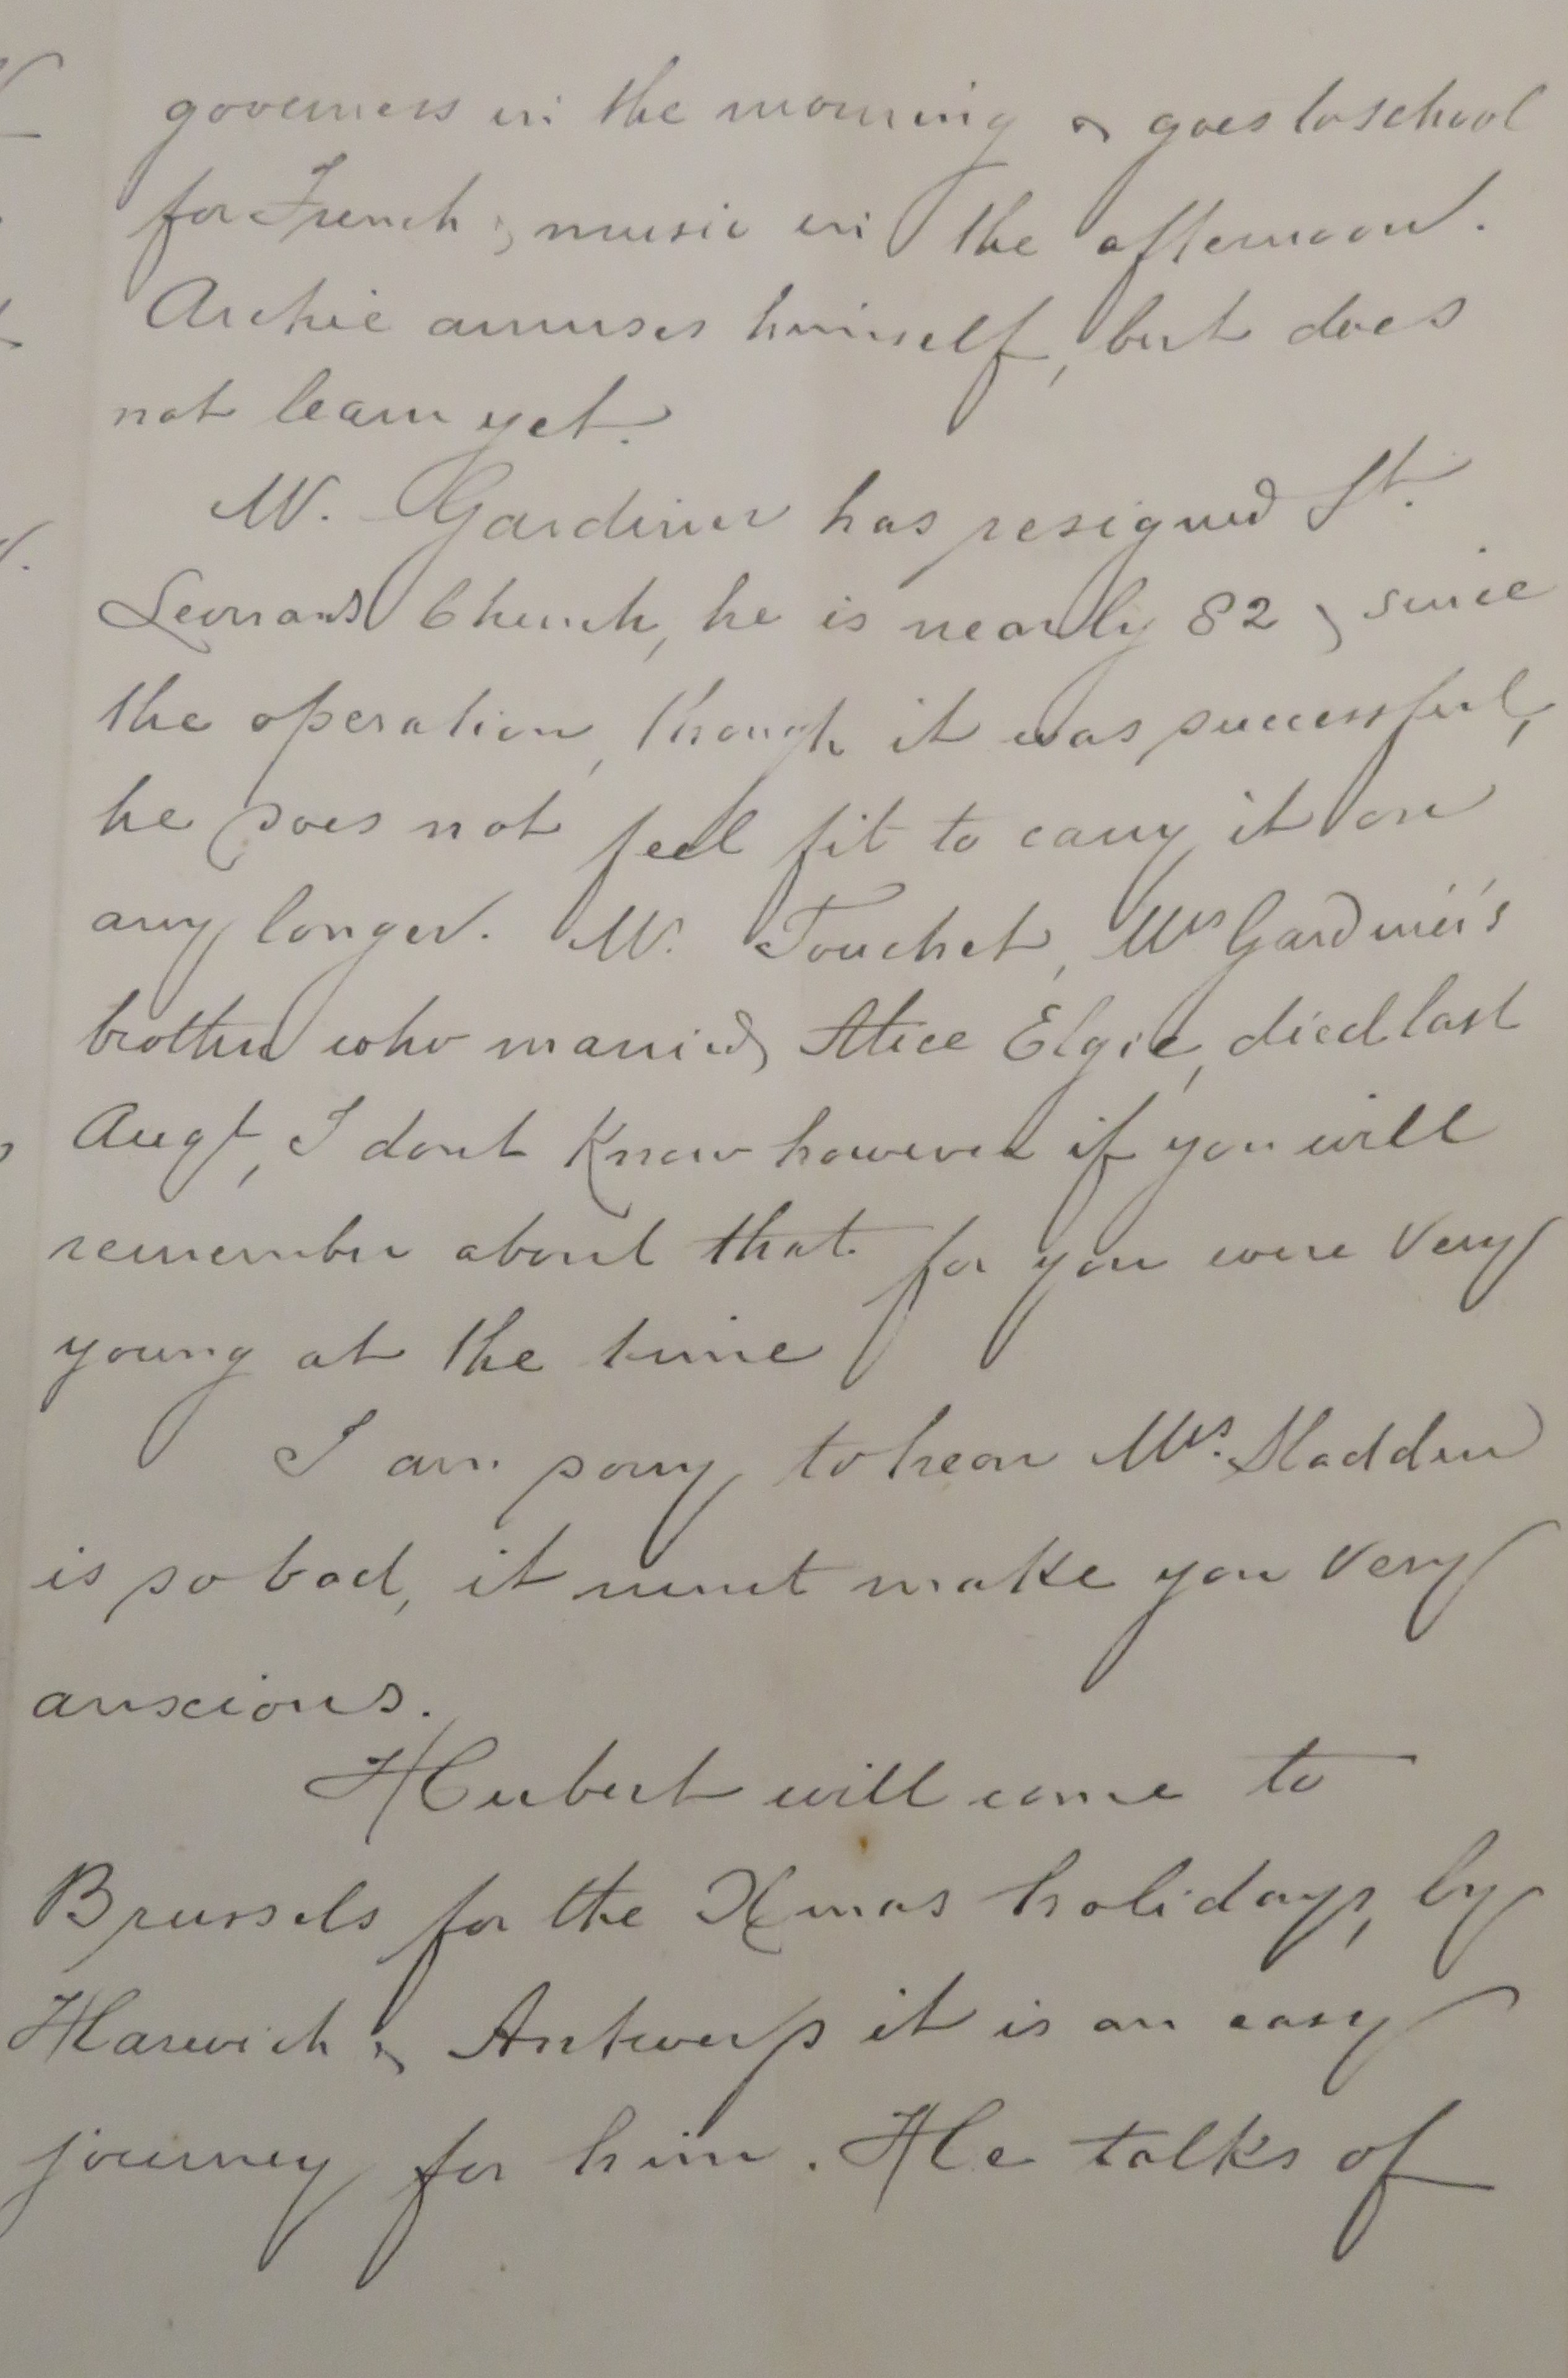 governess in the morning & goes to school
for French & music in the afternoon.
Archie amuses himself, but does
not learn yet.
Mr. Gardiner has resigned St.
Leonards Church, he is nearly 82 & since
the operation, though it was successful,
he does not feel fit to carry it on
any longer. Mr. Touchet, Mrs Gardiner's
brother who married Alice Elgie, died last
Augt, I dont know however if you will
remember about that for you were very
young at the time
I am sorry to hear Mrs. Sladden
is so bad, it must make you very
anxious.
Hubert will come to
Brussels for the Xmas holidays, by
Harwich & Antwerp it is an easy
journey for him. He talks of